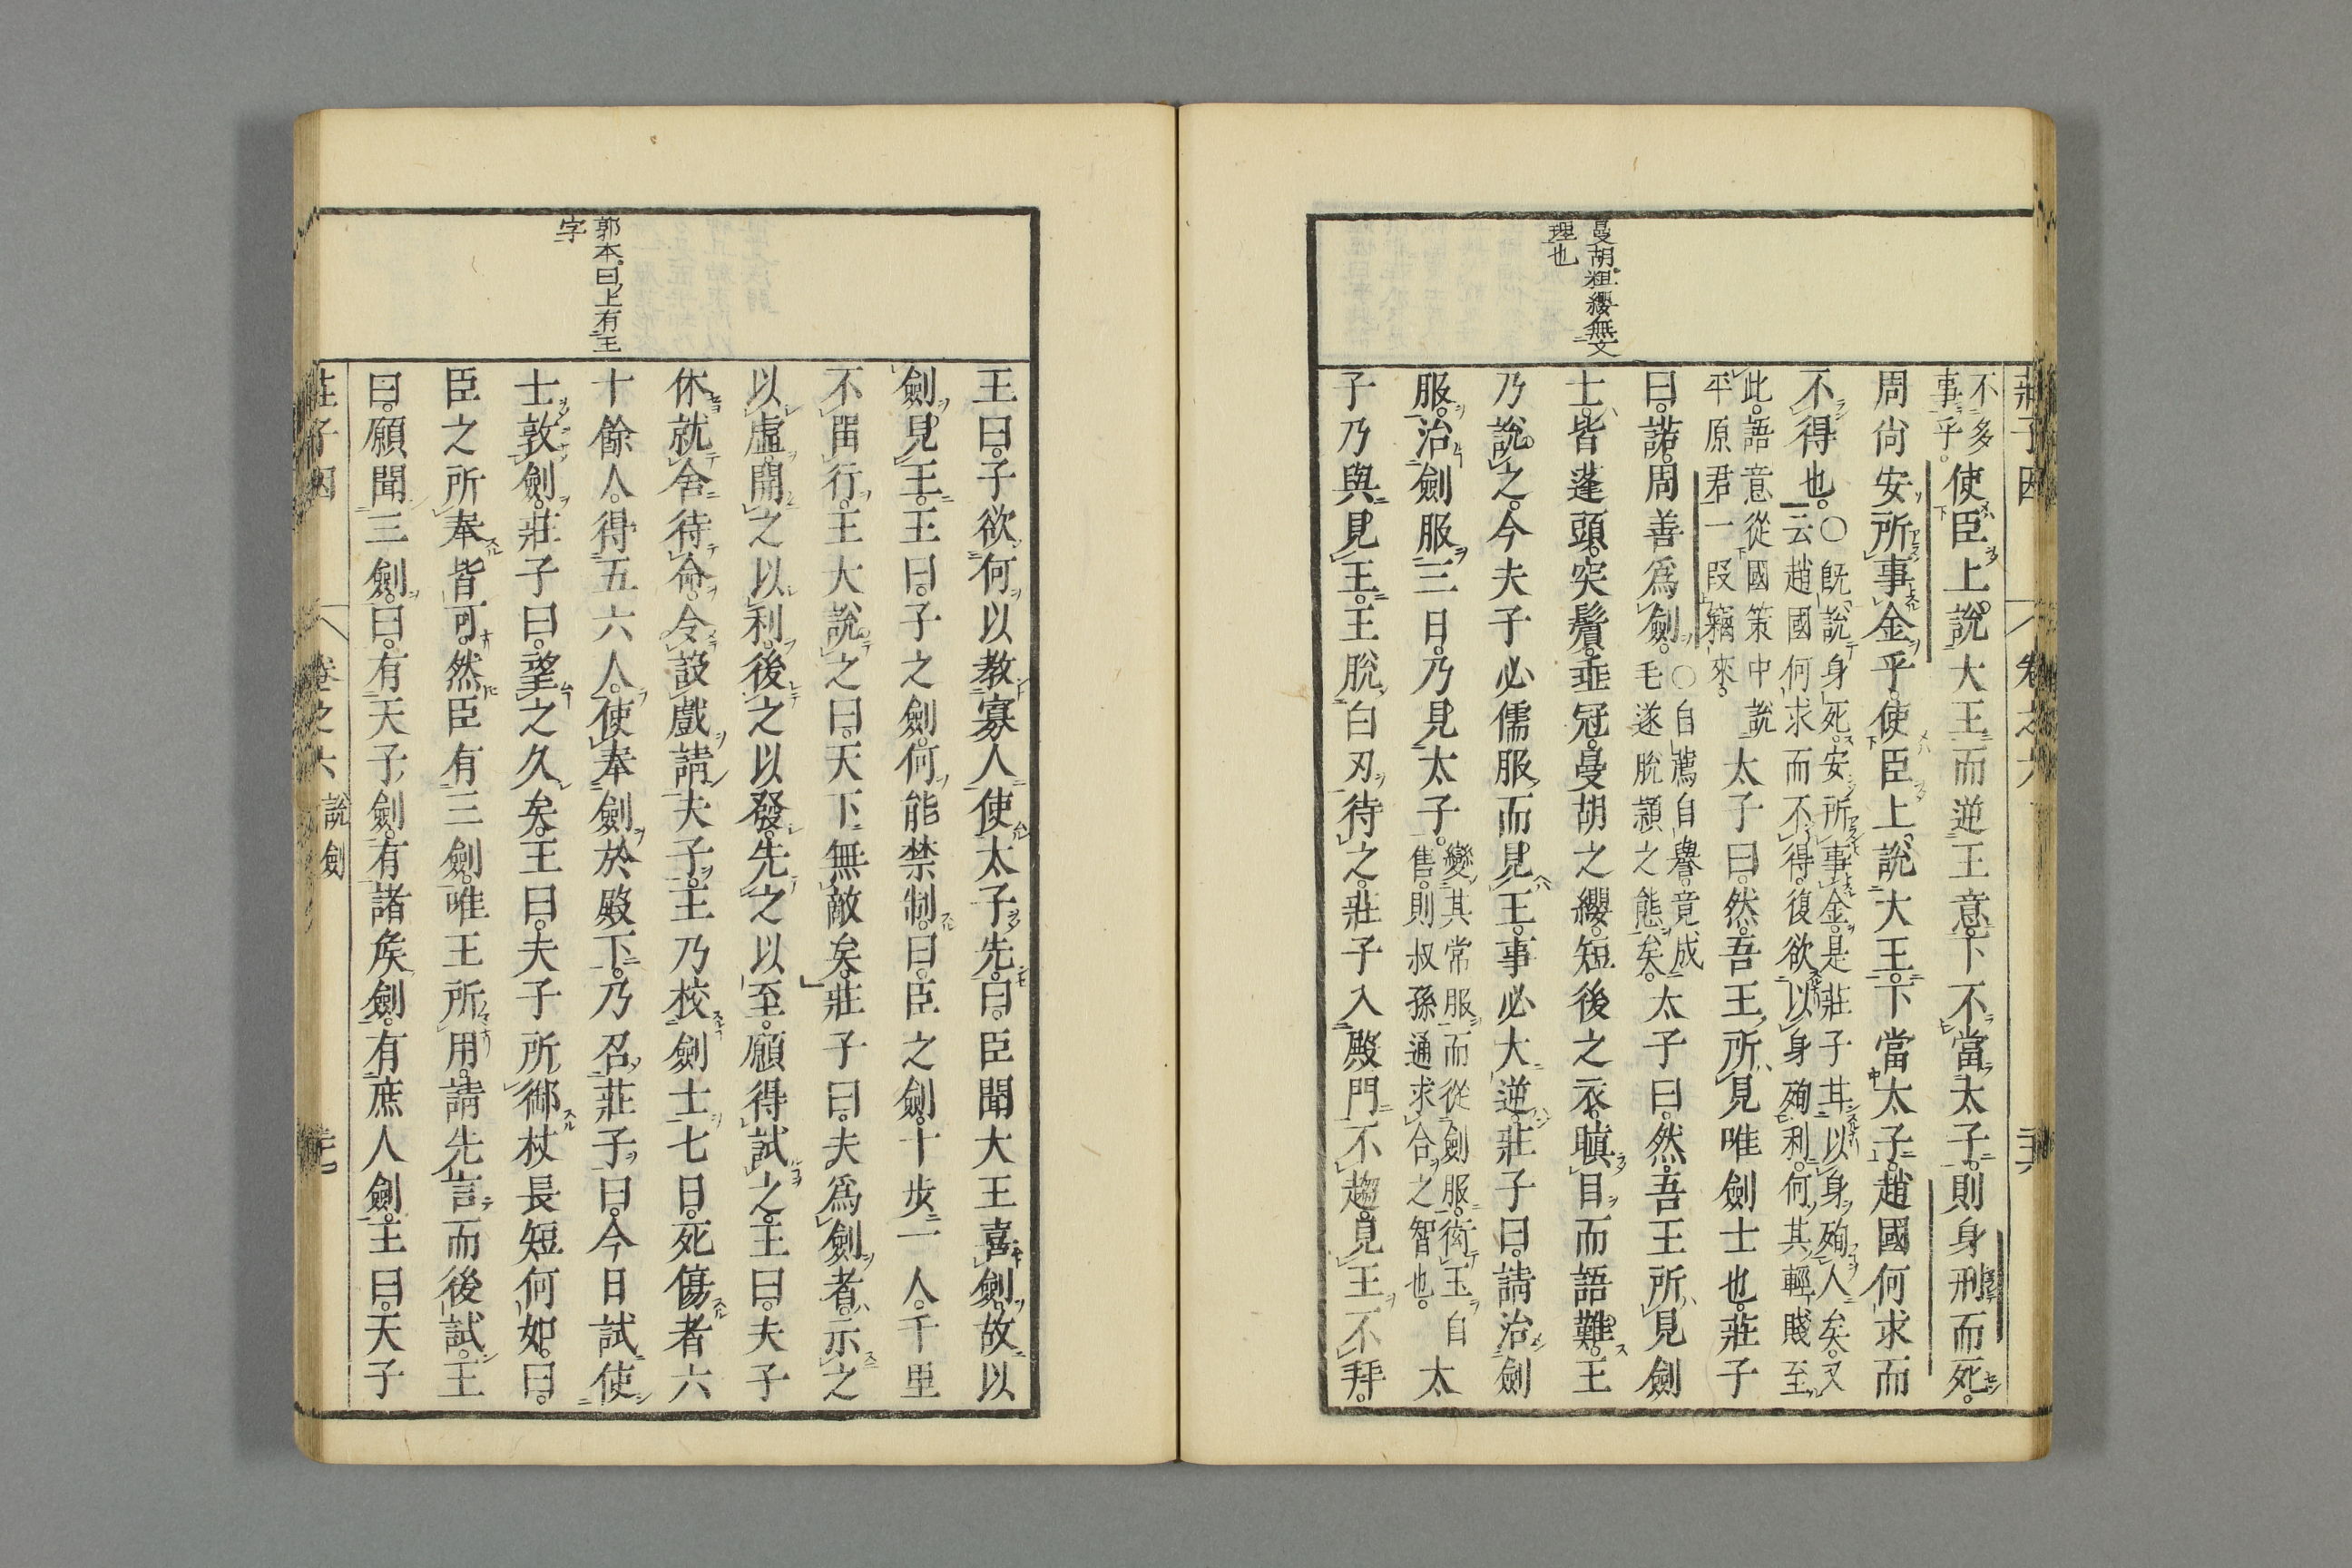 莊子因 卷之六 二十六
曼胡粗纓無文
理也
不多
事乎。
使臣上說大王而逆王意。下不當太子。則身刑而死。
周尚安所事金乎。使臣上說大王。下當太子。趙國何求而
不得也。
○既說身死。安所事金。是莊子甘以身殉人矣。又
云趙國何求而不得。復欲以身殉利。何其輕賤至
此。語意從國策中說
平原君一段竊來。
太子曰。然。吾王所見唯劍士也。莊子
曰。諾。周善爲劍。
○自薦自譽。竟成
毛遂脫穎之態矣。
太子曰。然。吾王所見劍
士。皆蓬頭突鬢。垂冠。曼胡之纓。短後之衣。瞋目而語難。王
乃說之。今夫子必儒服而見王。事必大逆。莊子曰。請治劍
服。治劍服三日。乃見太子。
變其常服而從劍服。衒玉自
售。則叔孫通求合之智也。
太
子乃與見王。王脫白刃待之。莊子入殿門不趨。見王不拜。
郭本。曰上有王
字
王曰。子欲何以教寡人。使太子先。曰。臣聞大王喜劍。故以
劍見王。王曰。子之劍。何能禁制。曰。臣之劍。十步一人。千里
不留行。王大說之曰。天下無敵矣。莊子曰。夫爲劍者。示之
以虛。開之以利。後之以發。先之以至。願得試之。王曰。夫子
休就舍待命。令設戲請夫子。王乃校劍士七日。死傷者六
十餘人。得五六人。使奉劍於殿下。乃召莊子。曰。今日試使
士敦劍。莊子曰。望之久矣。王曰。夫子所御杖長短何如。曰。
臣之所奉皆可。然臣有三劍。唯王所用。請先言而後試。王
曰。願聞三劍。曰。有天子劍。有諸矦劍。有庶人劍。王曰。天子
莊子因 卷之六 說劍 二十七